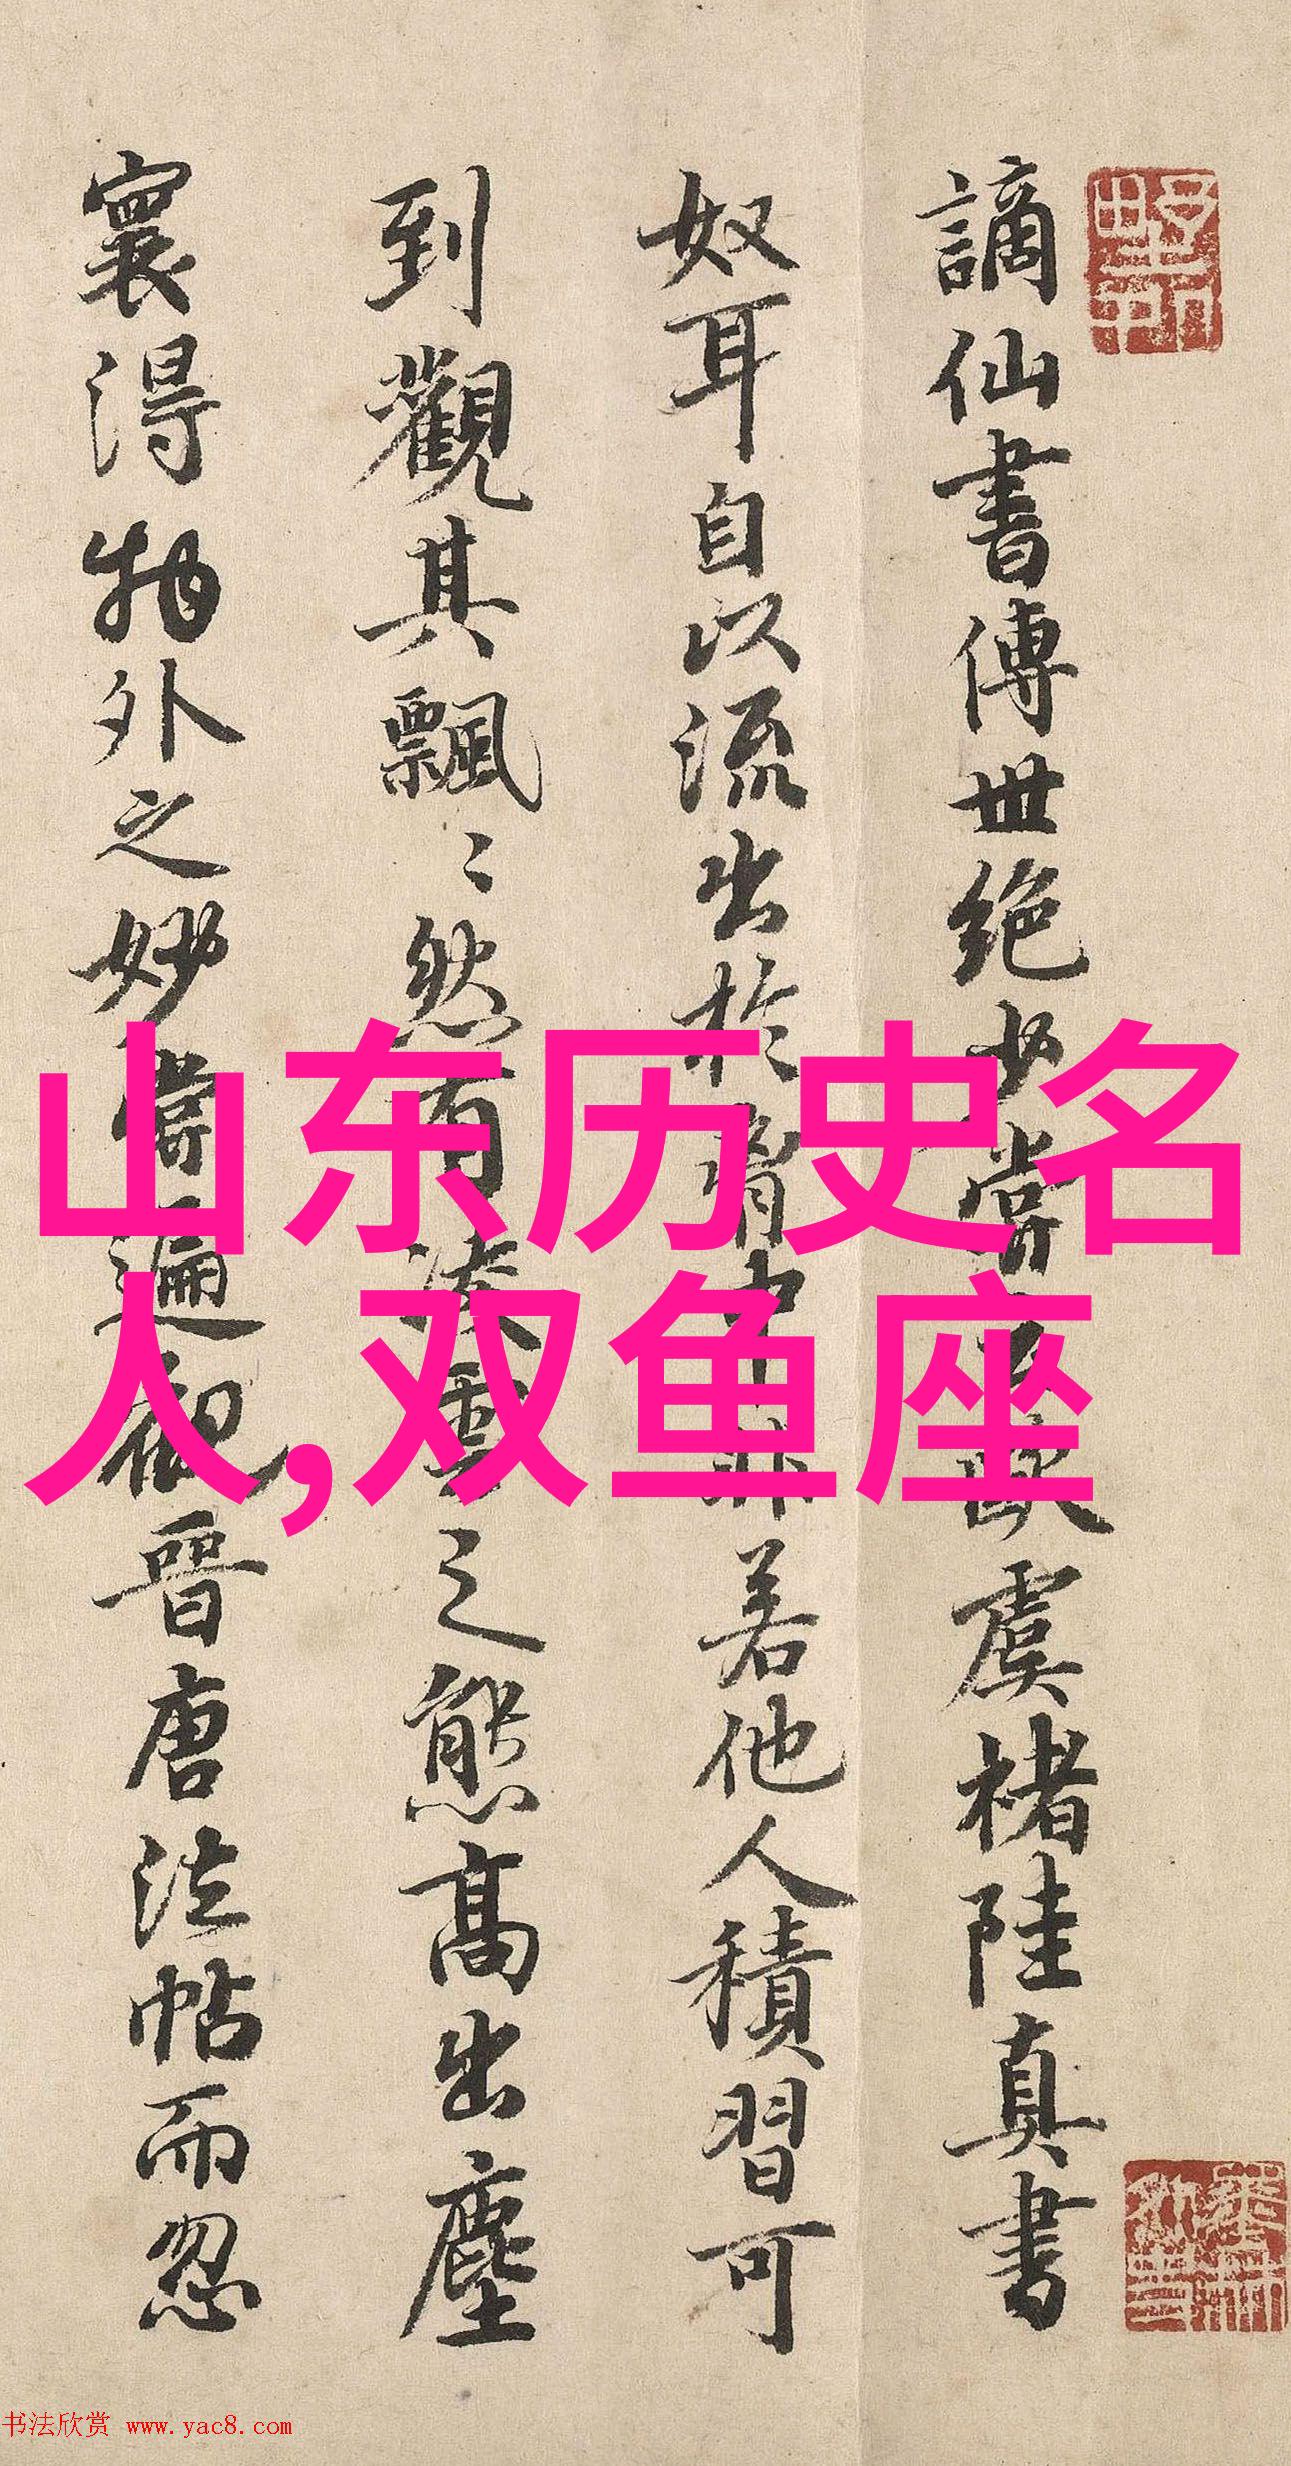 謫仙書傳世絕少嘗
虞褚陸真書
奴耳自以流出於胷中非若他人積習可
到觀其飄〻然有凌雲之態高出塵
寰得物外之妙嘗遍觀晉唐法帖而忽
山东历史名
人,双鱼座
书法欣赏 www.yac8.com